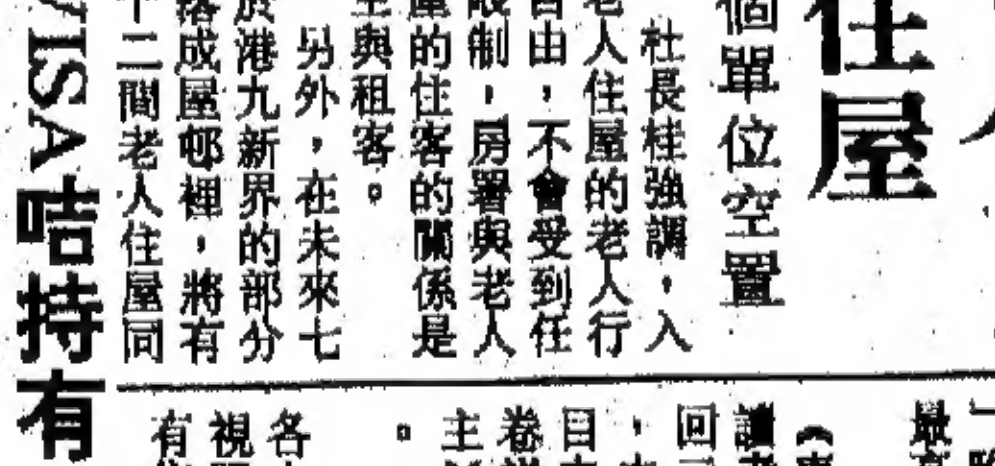 住屋
個單位空置
社長桂強調，入
老人住屋的老人行
由，不會受到任
限制，房署與老人
屋的住客的關係是
主與租客。
另外，在未來七
於港九新界的部分
落成屋邨裡，將有
二間老人住屋同
VISA咭持有
最
讀
回
，
目
卷
主
。
各
視
有